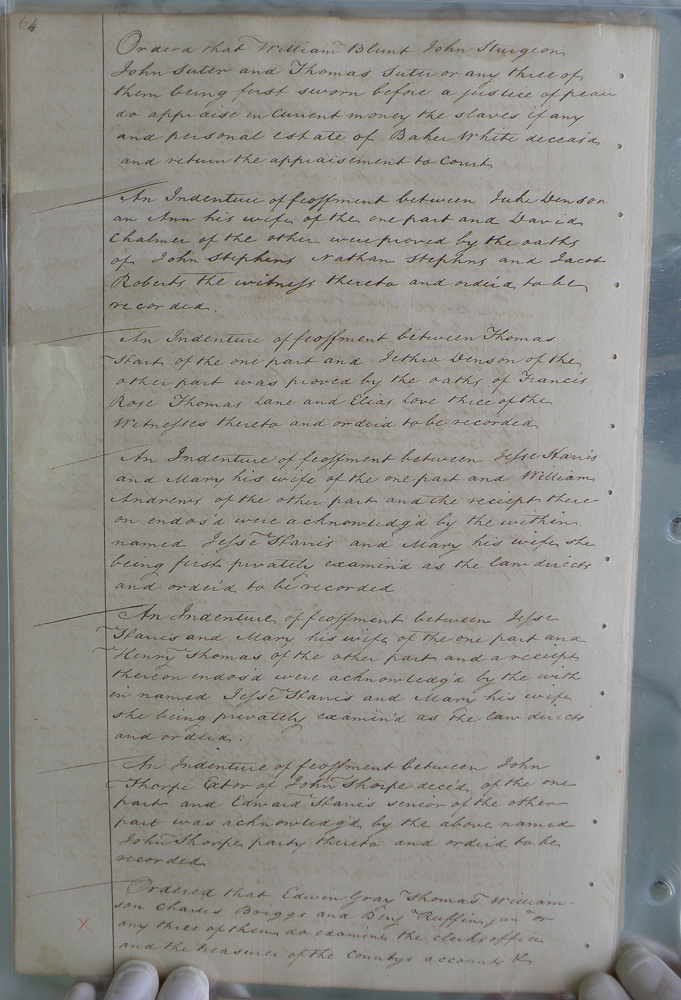 64
Orderd that William Blunt John Sturgeon
John Suter and Thomas Suter or any three of
them being first sworn before a justice of peace
do appraise in Current money the slaves if any
and personal estate of Baker White deceasd
and return the appraisement to Court
An Indenture of feoffment between Denson
an Ann his wife of the one part and David
Chalmer of the other were proved by the oaths
of John Stephens Nathan Stephns and Jacob
Roberts the witness thereto and orderd to be
recorded.
An Indenture of feoffment between Thomas
of the one part and Jethro Denson of the
other part was proved by the oaths of Francis
Rose Thomas Lane and Elias Love three of the
Witnesses thereto and orderd to be recorded
An Indenture of feoffment between Jesse Harris
and Mary his wife of the one part and William
Andrews of the other part and the reciept there-
on endos'd were acknowledg'd by the within
named Jesse Harris and Mary his wife she
being first privately examin'd as the law directs
and order'd to be recorded
An Indenture of feoffment between Jesse
Harris and Mary his wife of the one part and
Henry Thomas of the other part and a reciept
thereon endos'd were acknowledg'd by the with
in named Jesse Harris and Mary his wife
she being privately examin'd as the law directs
and orderd.
An Indenture of feoffment between John
Thorpe Extor of John Thorpe decd of the one
part and Edward Harris senior of the other
part was acknowledg'd by the above named
John Thorpe party thereto and orderd to be
recorded
Ordered that Edwin Gray Thomas William-
son Charles Briggs and Benj Ruffin junr or
any three of them do examine the clerks office
X and the treasurer of the Countys accounts &